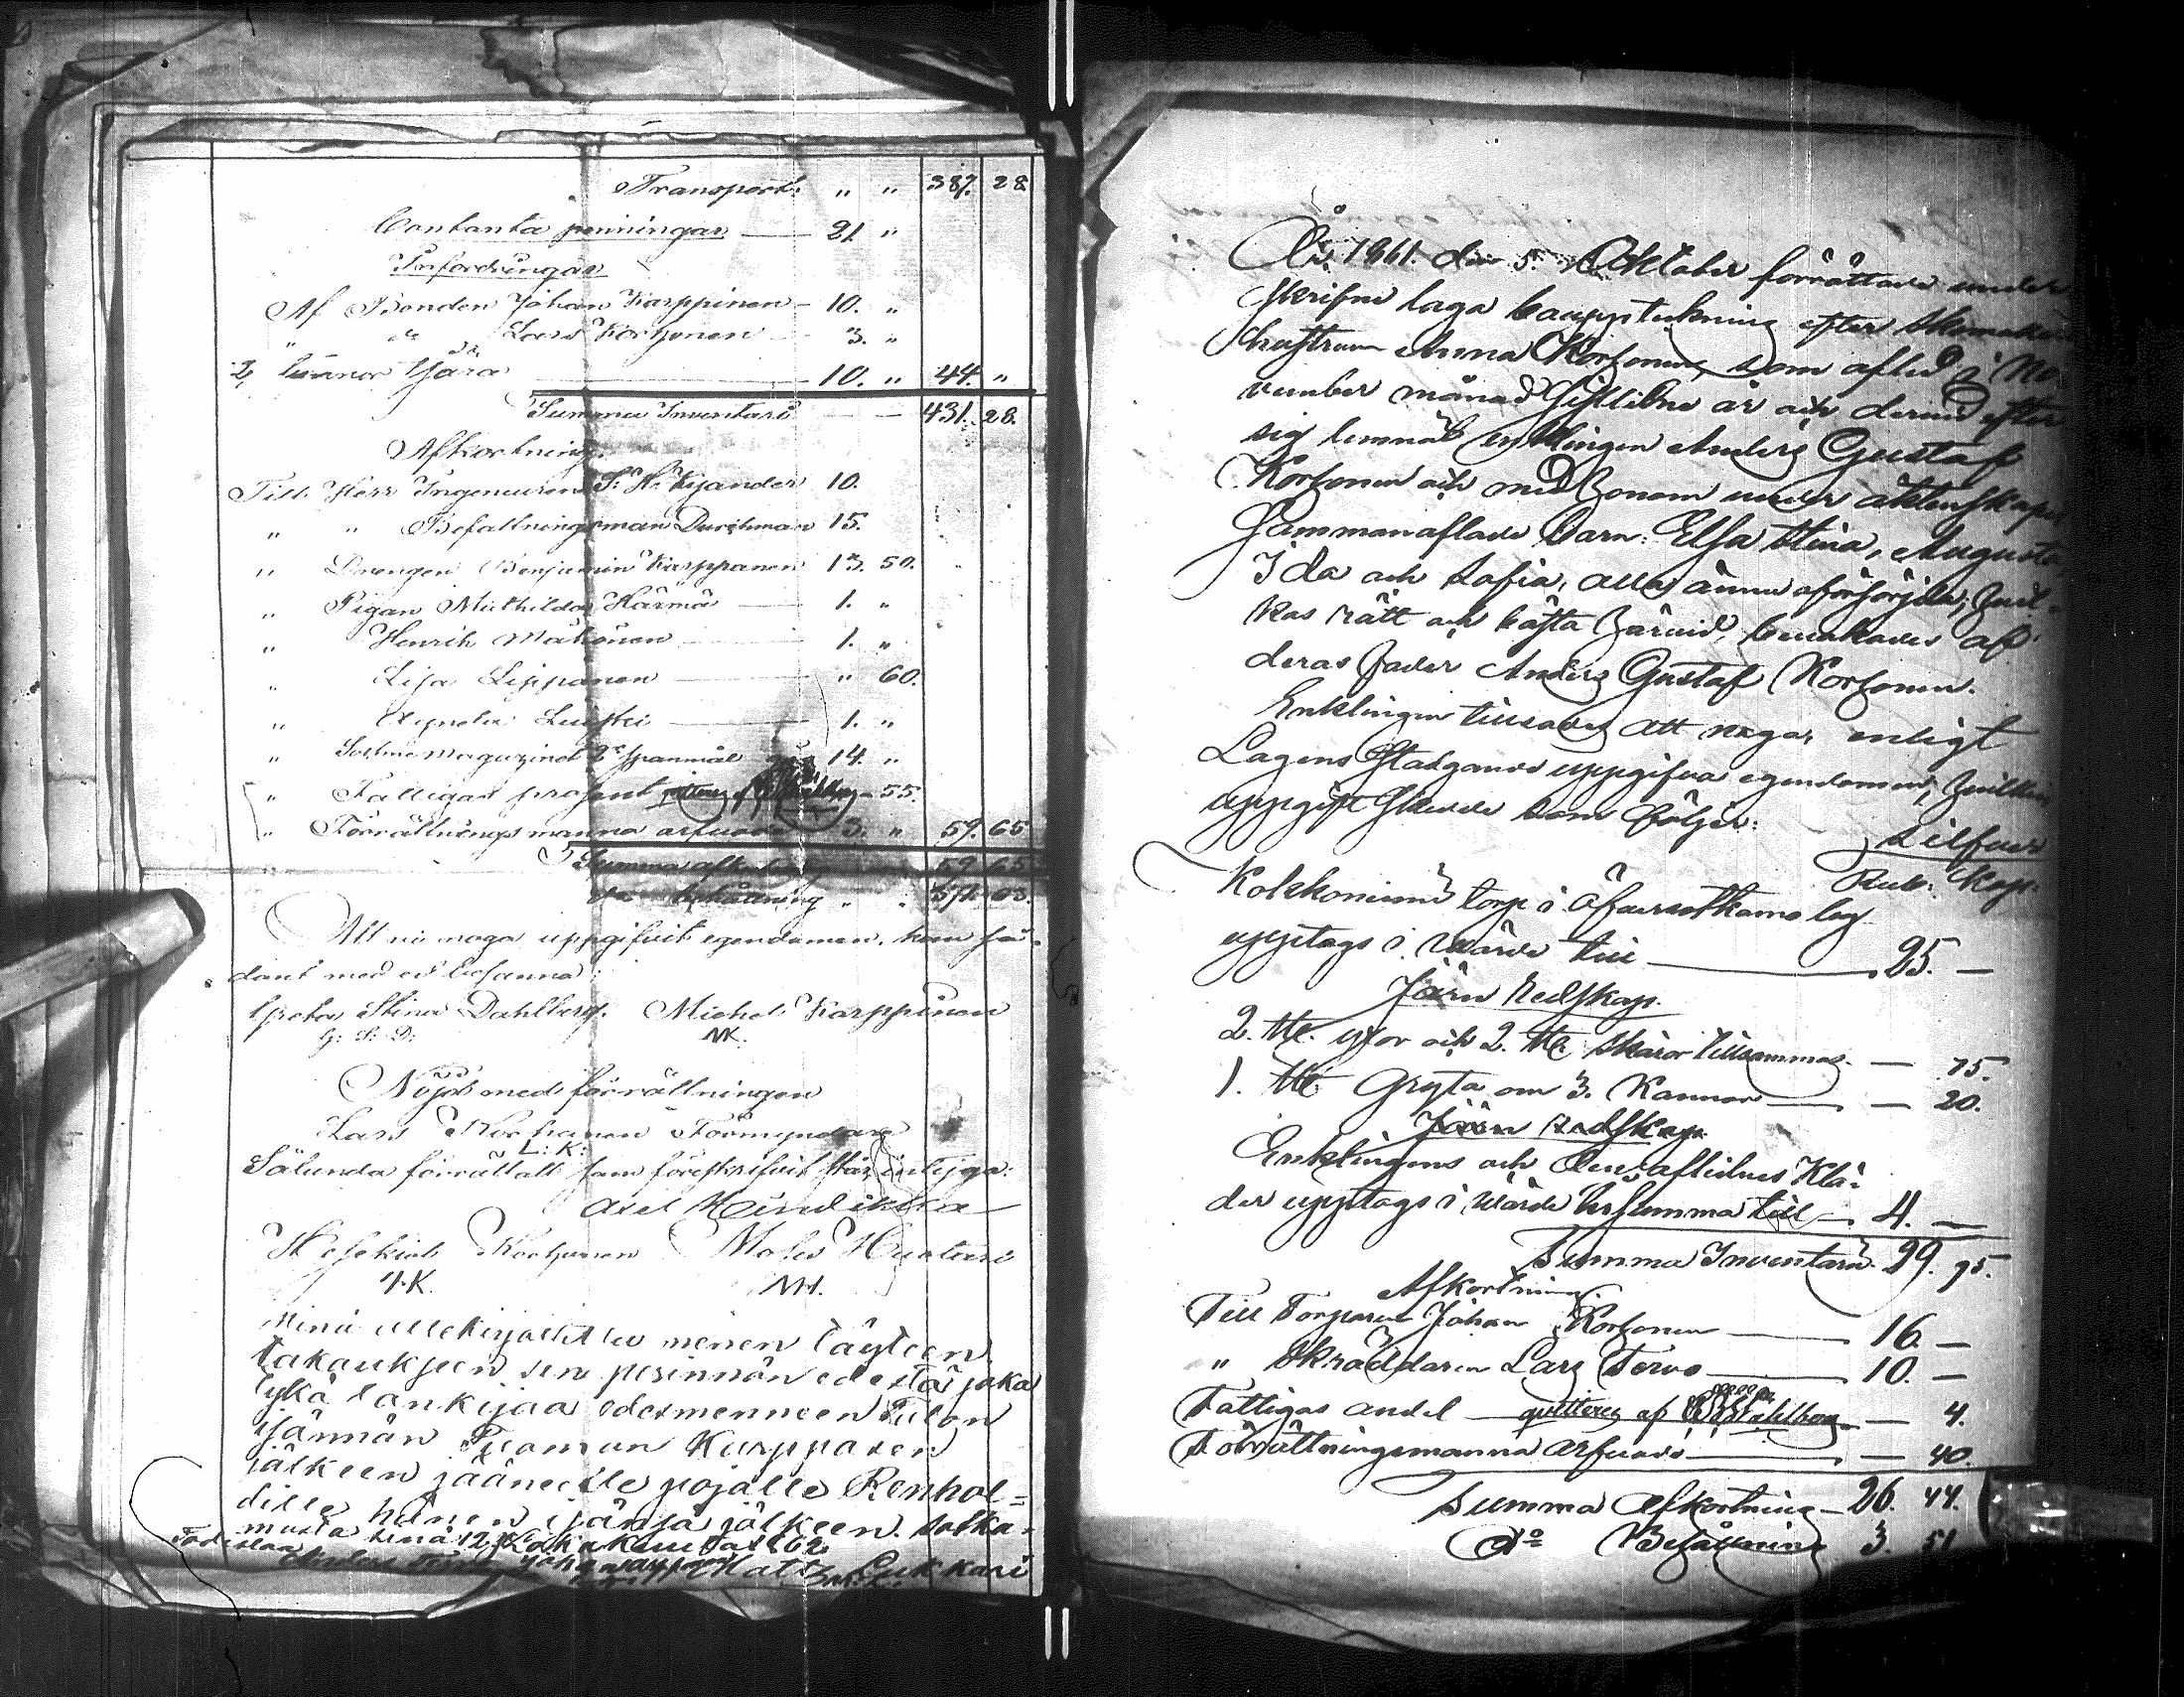 Transport. " " 387. 28
Contanta penningar — 21. "
Infordringar
Af Bonden Johan Karppinen — 10. "
" do Lars Korhonen — 3. "
2 tunnor tjära — 10. " 44. "
Summa Inventarii — 431. 28.
Afkortning.
Till Herr Ingenieuren Kjander 10.
" " Befallningsman Durchman 15.
" Drengen Benjamin Karppanen 13. 50.
" Pigan Mathilda Härmä — 1. "
" Henrik — 1. "
" Lisa Leppänen — " 60.
" Agneta — 1. "
" Magazinet spanmål 14. "
" Fattigas procent — 55.
" Förrättningsmanna arfvode 3. " 59. 65
Summa afkortning 59 65
do behållning " . 371. 63.
Att vi noga uppgifvit egendomen, kan så-
dant med ed besanna:
Greta Stina Dahlberg. Michel Karppinen
G: S: D: MK.
Nöjd med förrättningen
Lars Korhonen Förmyndare
L: K:
Sålunda förrättatt som föreskrifvit står, intyga:
Axel
Hesekiel Korhonen Moses Huotari
H.K. M.H.
Minä allekirjoitettu menen täyteen
takaukseen sen perinnön edestä joka
lankijaa edesmenneen Talon
isännän Tuomas Karppasen
jälkeen jääneelle pojalle Renhol=
dille hänen isänsä jälkeen. Sotka-
mosta 12 p. Lokakuuta 1862
Todistaa Matts Lukkari
År 1861. den 5. Oktober förrättade under
skrifne laga bouppteckning efter Skomakare
hustrun Anna Korhonen, som afled i No
vember månad sistlidne år och dervid efter
sig lemnat enklingen Anders Gustaf
Korhonen och med honom under äktenskapet
sammanaflade barn: Elsa Stina, Augusta
Ida och Sofia, alla ännu oförsörjda, hvil-
kas rätt och bästa härvid bevakades af
deras fader Anders Gustaf Korhonen.
Enklingen tillsades att noga enligt
Lagens stadgande uppgifva egendomen, hvilken
uppgift skedde som följer:
Silfver
Rub: Kop:
Kokkoniemi torp i Öfversotkamo by
upptags i wärde till — 25. —
Järn Redskap.
2. st. yxor och 2. st. skäror tillsammans — 75.
1. st. Gryta om 3. Kannor — 20.
Järn Redskap.
Enklingens och den aflidnes Klä-
der upptags i wärde till — 4. —
Summa Inventarii 29. 95.
Afkortning.
Till Torparen Johan Korhonen — 16. —
" Skräddaren Lars Tervo — 10. —
Fattigas andel — qvitteras af — 4.
Förrättningsmanna arfvode — 40.
Summa Afkortning — 26. 44.
do Behållning 3. 51